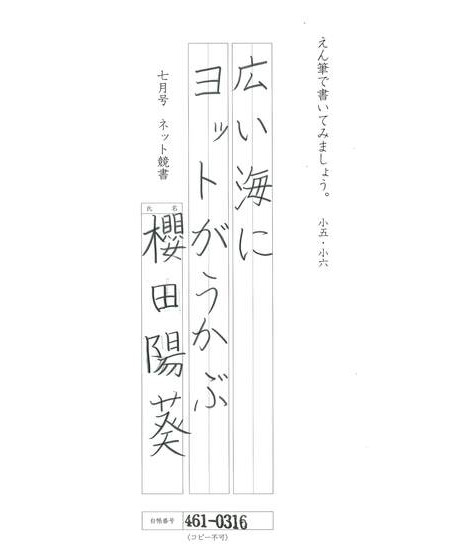 えん筆で書いてみましょう。 小五・小六
広い海に
ヨットがうかぶ
七月号 ネット競書
氏名
櫻田陽葵
台帳番号 461-0316
(コピー不可)